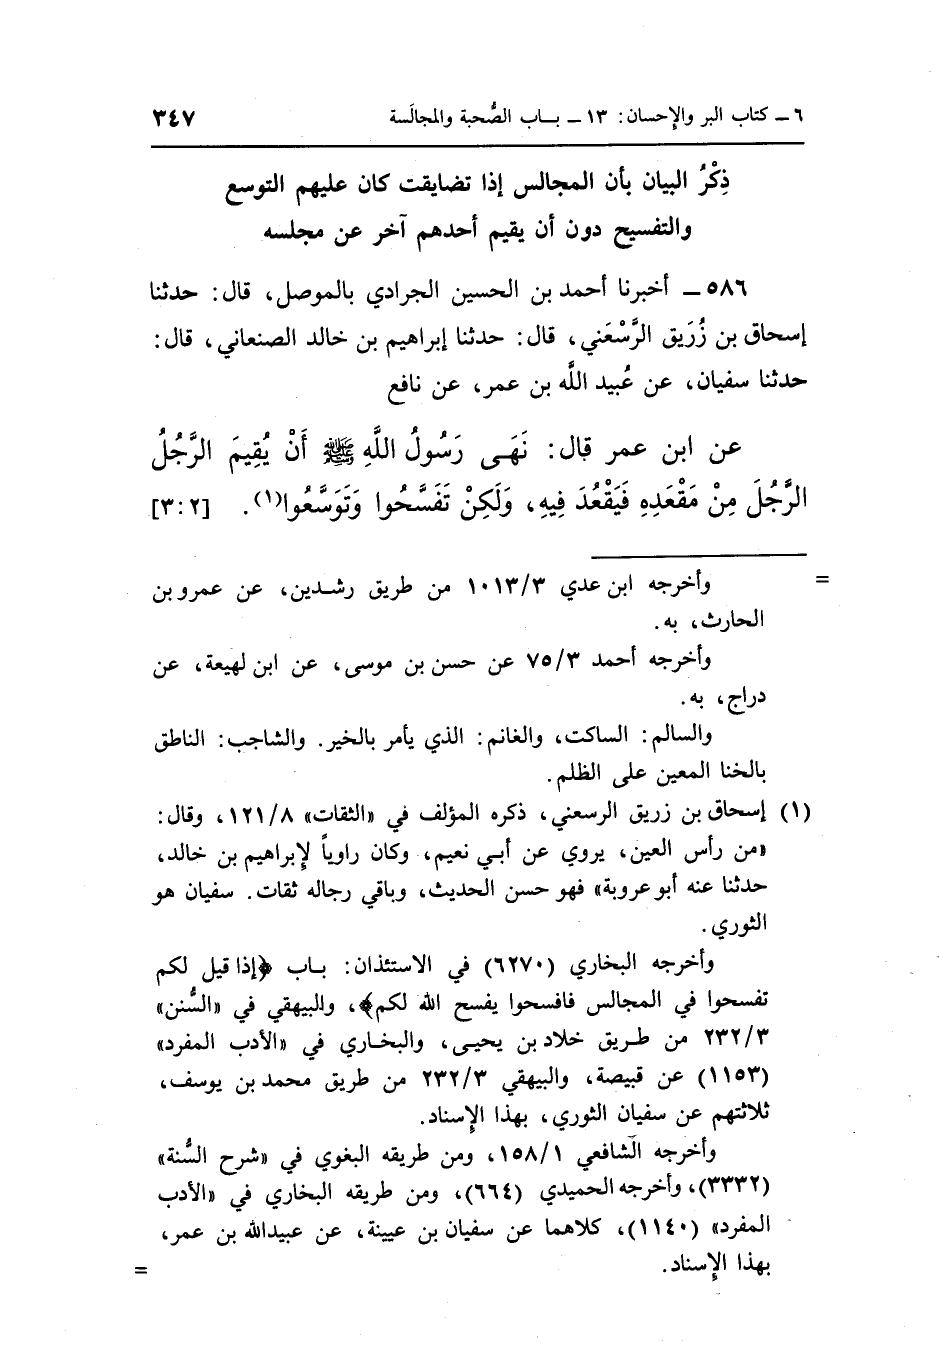 ٦ ــ كتاب البر والإحسان: ١٣ ــ بــاب الصُّحبة والمجالَسة ٣٤٧
ذِكْرُ البيان بأن المجالس إذا تضايقت كان عليهم التوسع
والتفسيح دون أن يقيم أحدهم آخر عن مجلسه
٥٨٦ ــ أخبرنا أحمد بن الحسين الجرادي بالموصل، قال: حدثنا
إسحاق بن زُرَيق الرَّسْعَني، قال: حدثنا إبراهيم بن خالد الصنعاني، قال:
حدثنا سفيان، عن عُبيد اللَّه بن عمر، عن نافع
عن ابن عمر قال: نَهَى رَسُولُ اللَّهِ ﷺ أَنْ يُقِيمَ الرَّجُلُ
الرَّجُلَ مِنْ مَقْعَدِهِ فَيَقْعُدَ فِيهِ، وَلَكِنْ تَفَسَّحُوا وَتَوَسَّعُوا(١). [٣:٢]
= وأخرجه ابن عدي ١٠١٣/٣ من طريق رشدين، عن عمرو بن
الحارث، به.
وأخرجه أحمد ٧٥/٣ عن حسن بن موسى، عن ابن لهيعة، عن
دراج، به.
والسالم: الساكت، والغانم: الذي يأمر بالخير. والشاجب: الناطق
بالخنا المعين على الظلم.
(١) إسحاق بن زريق الرسعني، ذكره المؤلف في «الثقات» ١٢١/٨، وقال:
«من رأس العين، يروي عن أبي نعيم، وكان راوياً لإبراهيم بن خالد،
حدثنا عنه أبو عروبة» فهو حسن الحديث، وباقي رجاله ثقات. سفيان هو
الثوري.
وأخرجه البخاري (٦٢٧٠) في الاستئذان: باب ﴿إذا قيل لكم
تفسحوا في المجالس فافسحوا يفسح الله لكم﴾، والبيهقي في «السُّنن»
٢٣٢/٣ من طريق خلاد بن يحيى، والبخاري في «الأدب المفرد»
(١١٥٣) عن قبيصة، والبيهقي ٢٣٢/٣ من طريق محمد بن يوسف،
ثلاثتهم عن سفيان الثوري، بهذا الإسناد.
وأخرجه الشافعي ١٥٨/١، ومن طريقه البغوي في «شرح السُّنة»
(٣٣٣٢)، وأخرجه الحميدي (٦٦٤)، ومن طريقه البخاري في «الأدب
المفرد» (١١٤٠)، كلاهما عن سفيان بن عيينة، عن عبيدالله بن عمر،
بهذا الإسناد. =